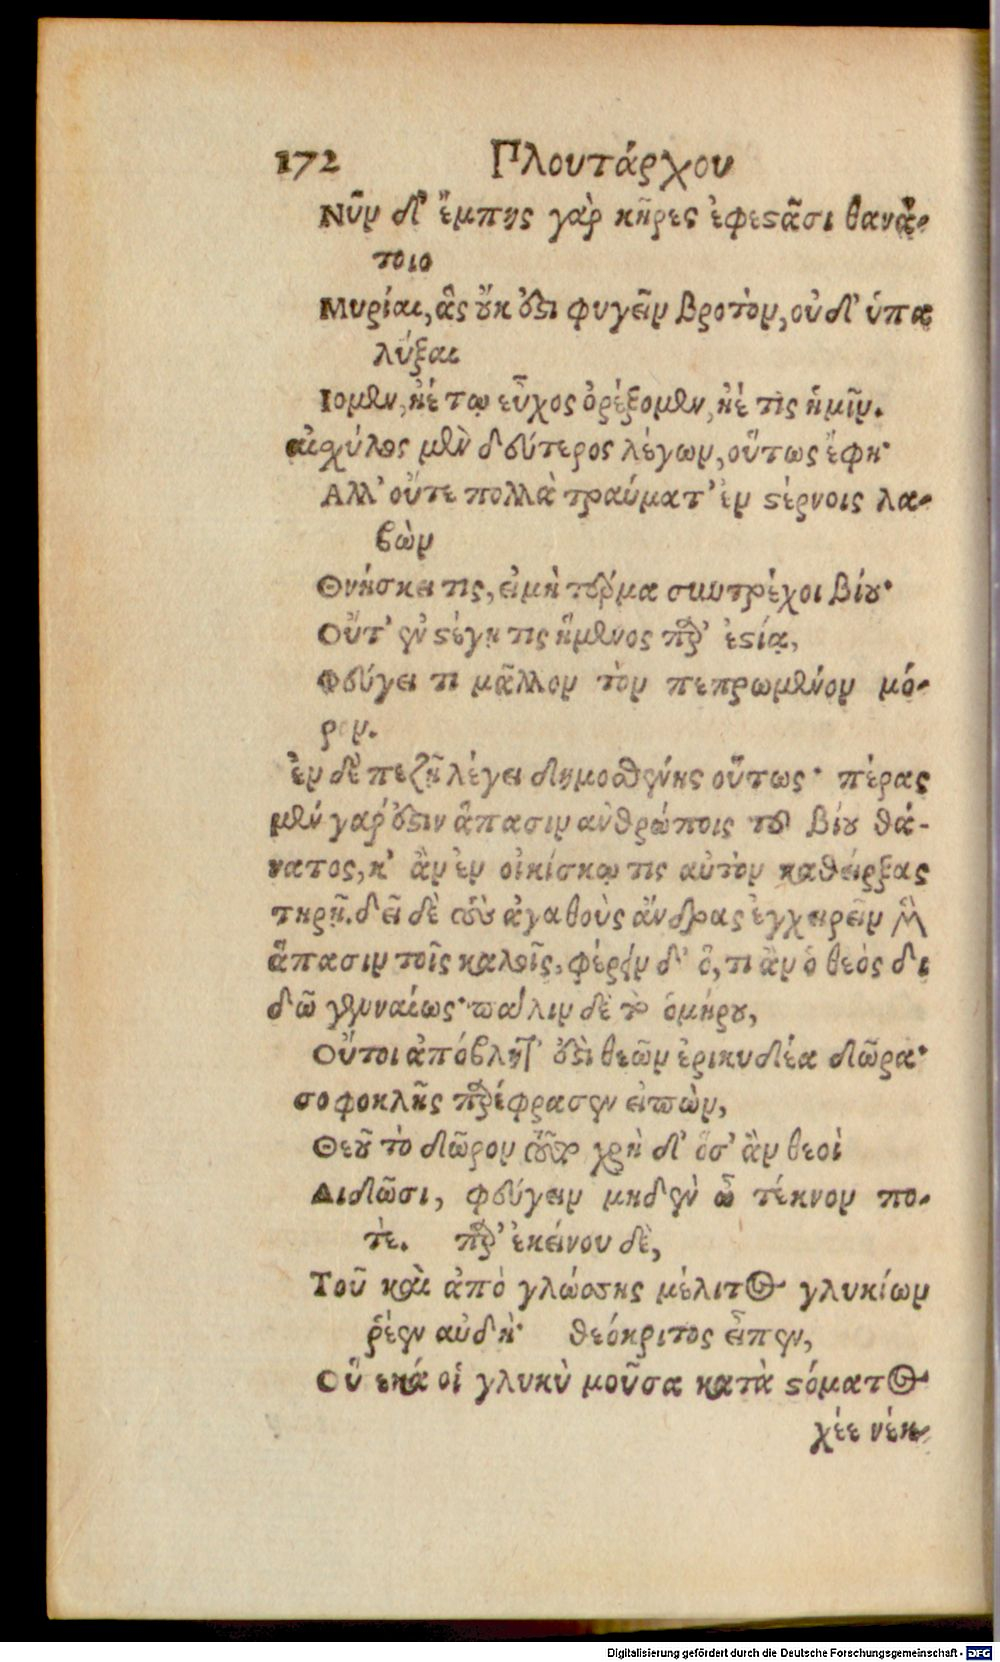 172 Πλουτάρχου
Νῦν δ' ἔμπης γὰρ κῆρες ἐφεϛᾶσι θανά-
τοιο
Μυρίαι, ἃς οὐκ ἔϛι φυγεῖν βροτὸν, οὐδ' ὑπα
λύξαι
Ιομεν, ἠέ τῳ εὖχος ὀρέξομεν, ἠέ τὶς ἡμῖν.
αἰσχύλος μὲν δεύτερος λέγων, οὕτως ἔφη·
Αλλ' οὔτε πολλὰ τραύματ' ἐν ϛέρνοις λα-
βὼν
Θνήσκει τις, εἰ μὴ τοὔρμα συντρέχοι βίου·
Οὔτ' ἐν ϛέγῃ τις ἥμενος παρ' ἐϛίᾳ,
Φεύγει τι μᾶλλον τὸν πεπρωμένον μό-
ρον.
ἐν δὲ πεζῇ λέγει δημοσθένης οὕτως· πέρας
μὲν γάρ ἐϛιν ἅπασιν ἀνθρώποις τοῦ βίου θά-
νατος, κ' ἂν ἐν οἰκίσκῳ τις αὑτὸν καθείρξας
τηρῇ. δεῖ δὲ τοὺς ἀγαθοὺς ἄνδρας ἐγχειρεῖν μὲν
ἅπασιν τοῖς καλοῖς, φέρειν δ' ὅ,τι ἂν ὁ θεὸς δι
δῶ γενναίως· πάλιν δὲ τοῦ ὁμήρου,
Οὔτοι ἀπόβλητ' ἐϛὶ θεῶν ἐρικυδέα δῶρα·
σοφοκλῆς παρέφρασεν εἰπὼν,
Θεοῦ τὸ δῶρον τοῦτο χρὴ δ' ὅσ' ἂν θεοὶ
Διδῶσι, φεύγειν μηδὲν ὦ τέκνον πο-
τὲ. παρ' ἐκείνου δὲ,
Τοῦ καὶ ἀπὸ γλώσσης μέλιτος γλυκίων
ῥέεν αὐδὴ· θεόκριτος εἶπεν,
Οὕνεκά οἱ γλυκὺ μοῦσα κατὰ ϛόματος
χέε νέκ-
Digitalisierung gefördert durch die Deutsche Forschungsgemeinschaft - DFG